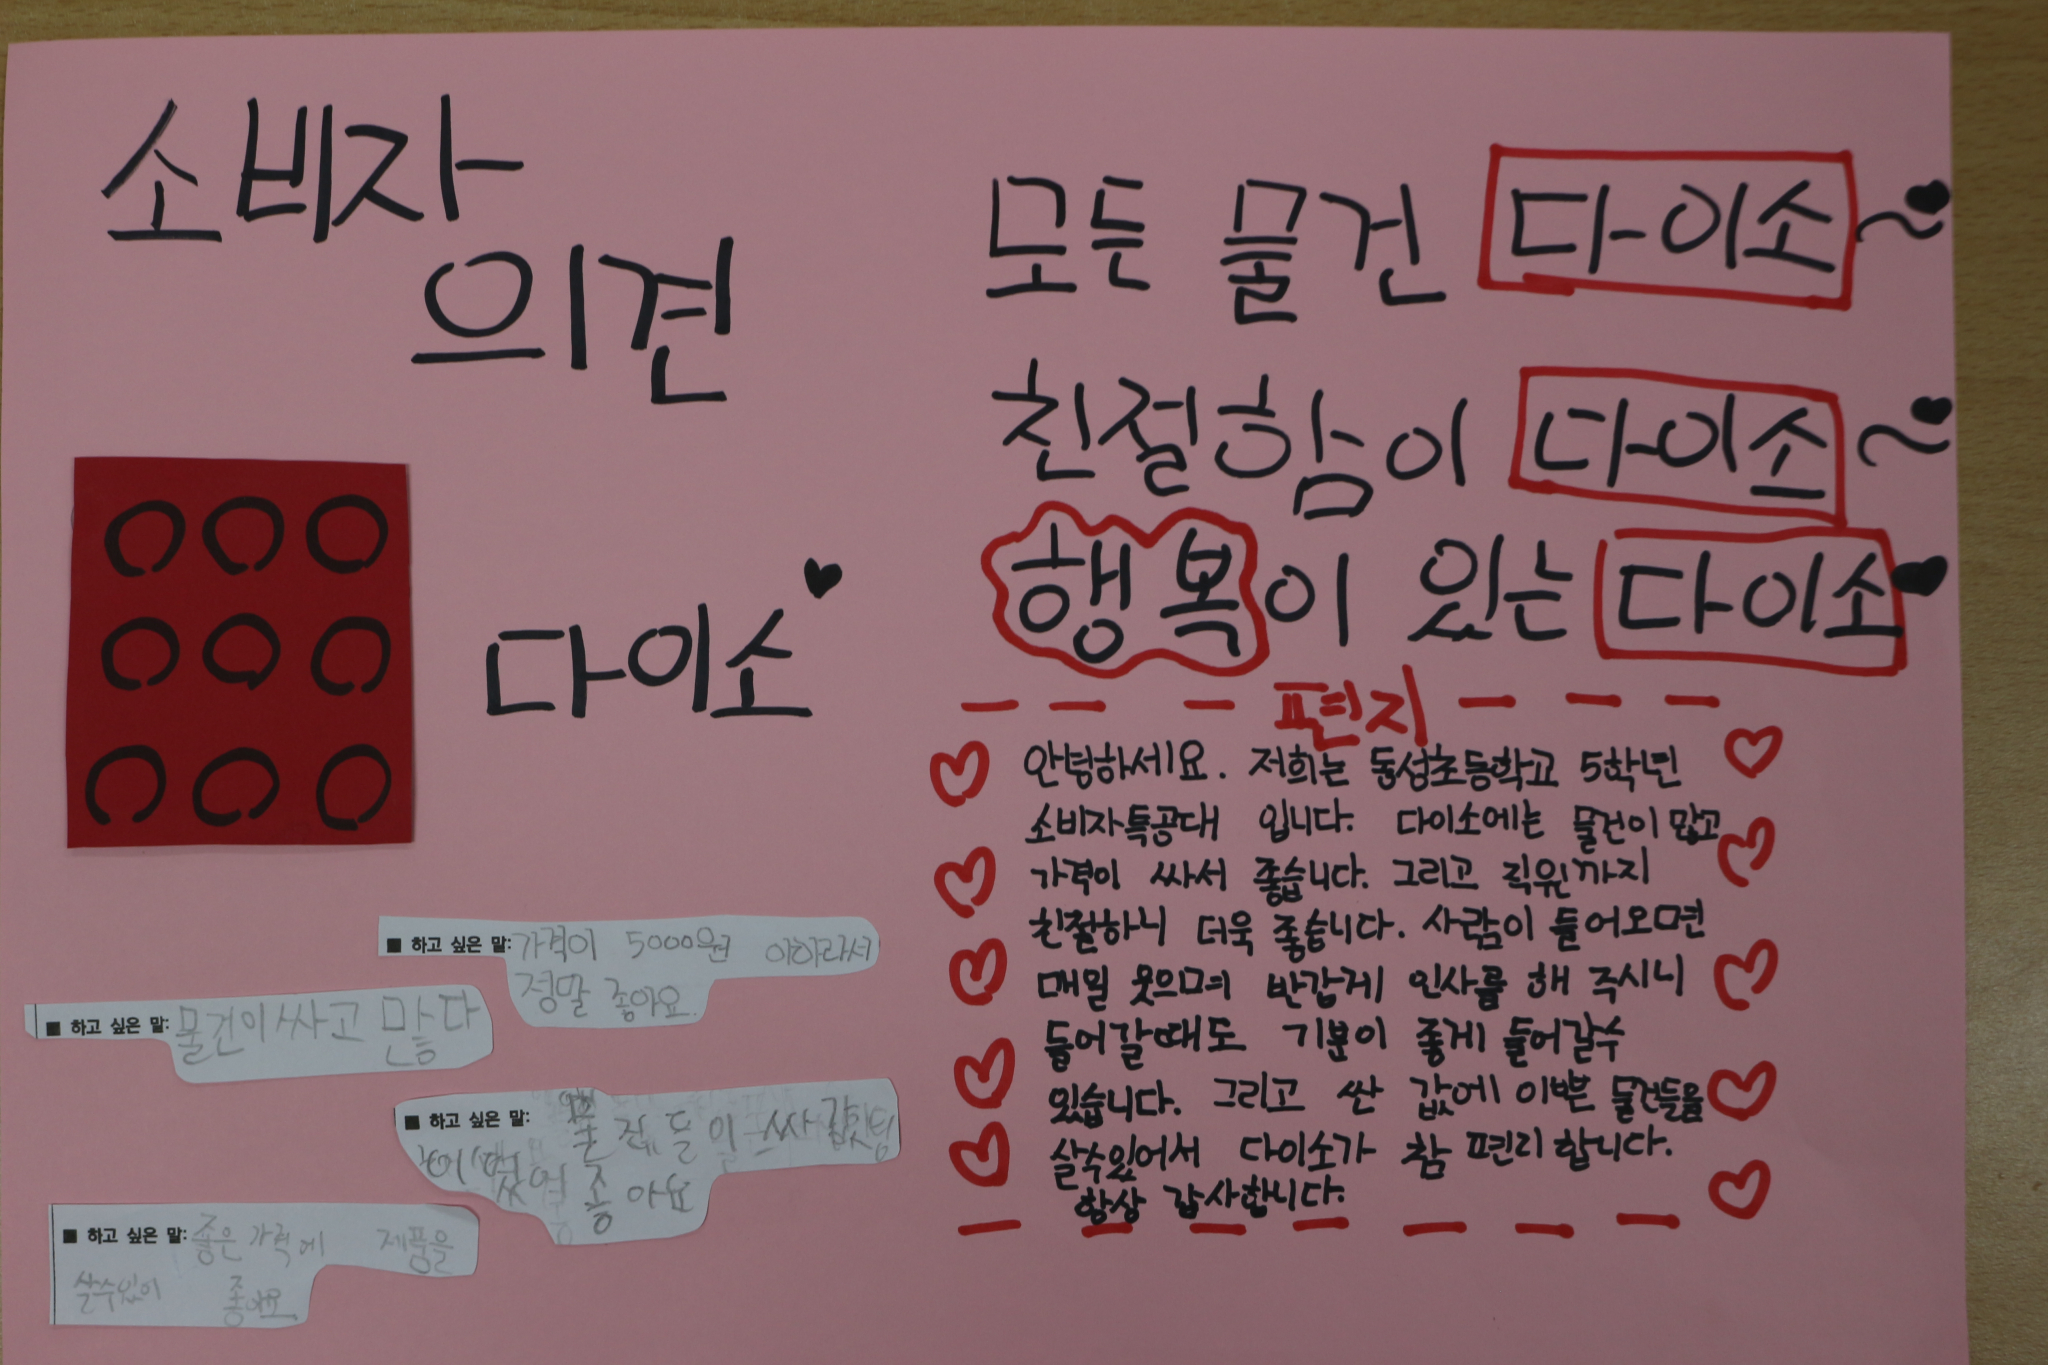 소비자
의견
다이소
■ 하고 싶은 말: 가격이 5000원 이하라서
정말 좋아요.
■ 하고 싶은 말: 물건이 싸고 많다
■ 하고 싶은 말:
좋아요
■ 하고 싶은 말: 좋은 가격에 제품을
살수있어 좋아요
모든 물건 다이소~
친절함이 다이소~
행복이 있는 다이소
편지
안녕하세요. 저희는 동성초등학교 5학년
소비자특공대 입니다. 다이소에는 물건이 많고
가격이 싸서 좋습니다. 그리고 직원까지
친절하니 더욱 좋습니다. 사람이 들어오면
매일 웃으며 반갑게 인사를 해 주시니
들어갈때도 기분이 좋게 들어갈수
있습니다. 그리고 싼 값에 이쁜 물건들을
살수있어서 다이소가 참 편리합니다.
항상 감사합니다.